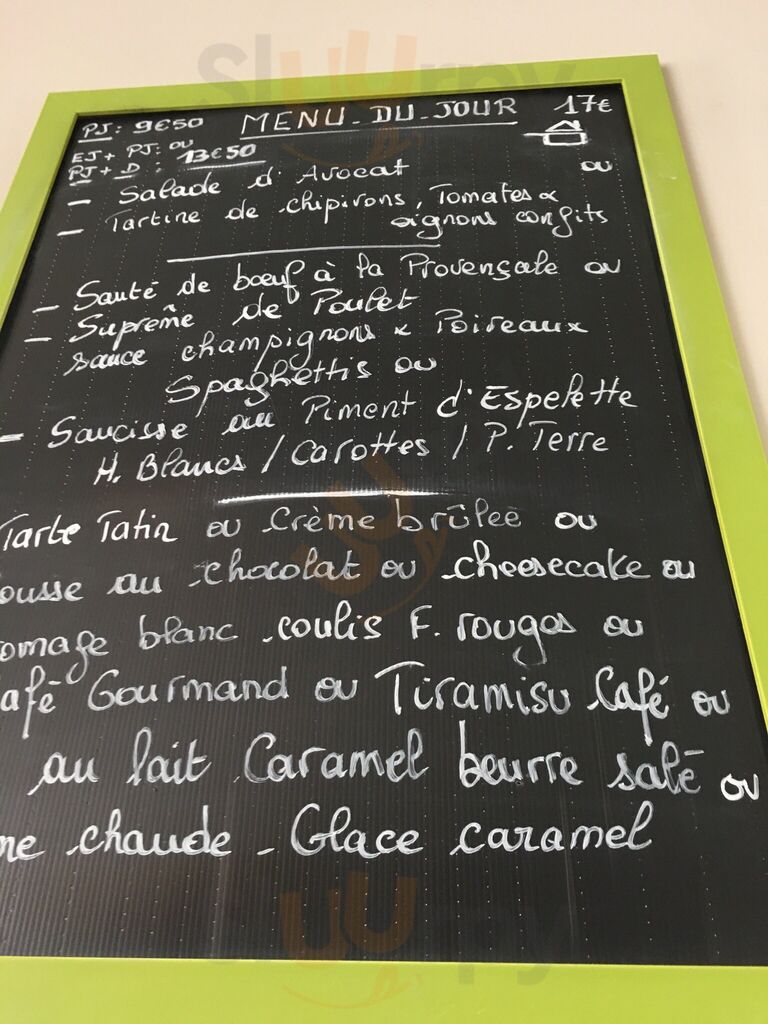 PJ: 9€50 MENU-DU-JOUR 17€
EJ + PJ: ou
PJ + D : 13€50
- Salade d'Avocat ou
- Tartine de chipirons, Tomates &
oignons confits
- Sauté de bœuf à la Provençale ou
- Suprême de Poulet
sauce champignons & Poireaux
Spaghettis ou
- Saucisse au Piment d'Espelette
H. Blancs / Carottes / P. Terre
Tarte Tatin ou Crème brûlée ou
ousse au chocolat ou cheesecake ou
omage blanc coulis F. rouges ou
afé Gourmand ou Tiramisu Café ou
au lait Caramel beurre salé ou
ne chaude - Glace caramel
Slurpy